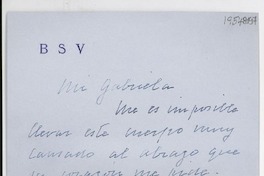 B S V
Mi Gabriela
Me es imposible
llevar este cuerpo muy
cansado al abrazo que
mi corazón me pide.